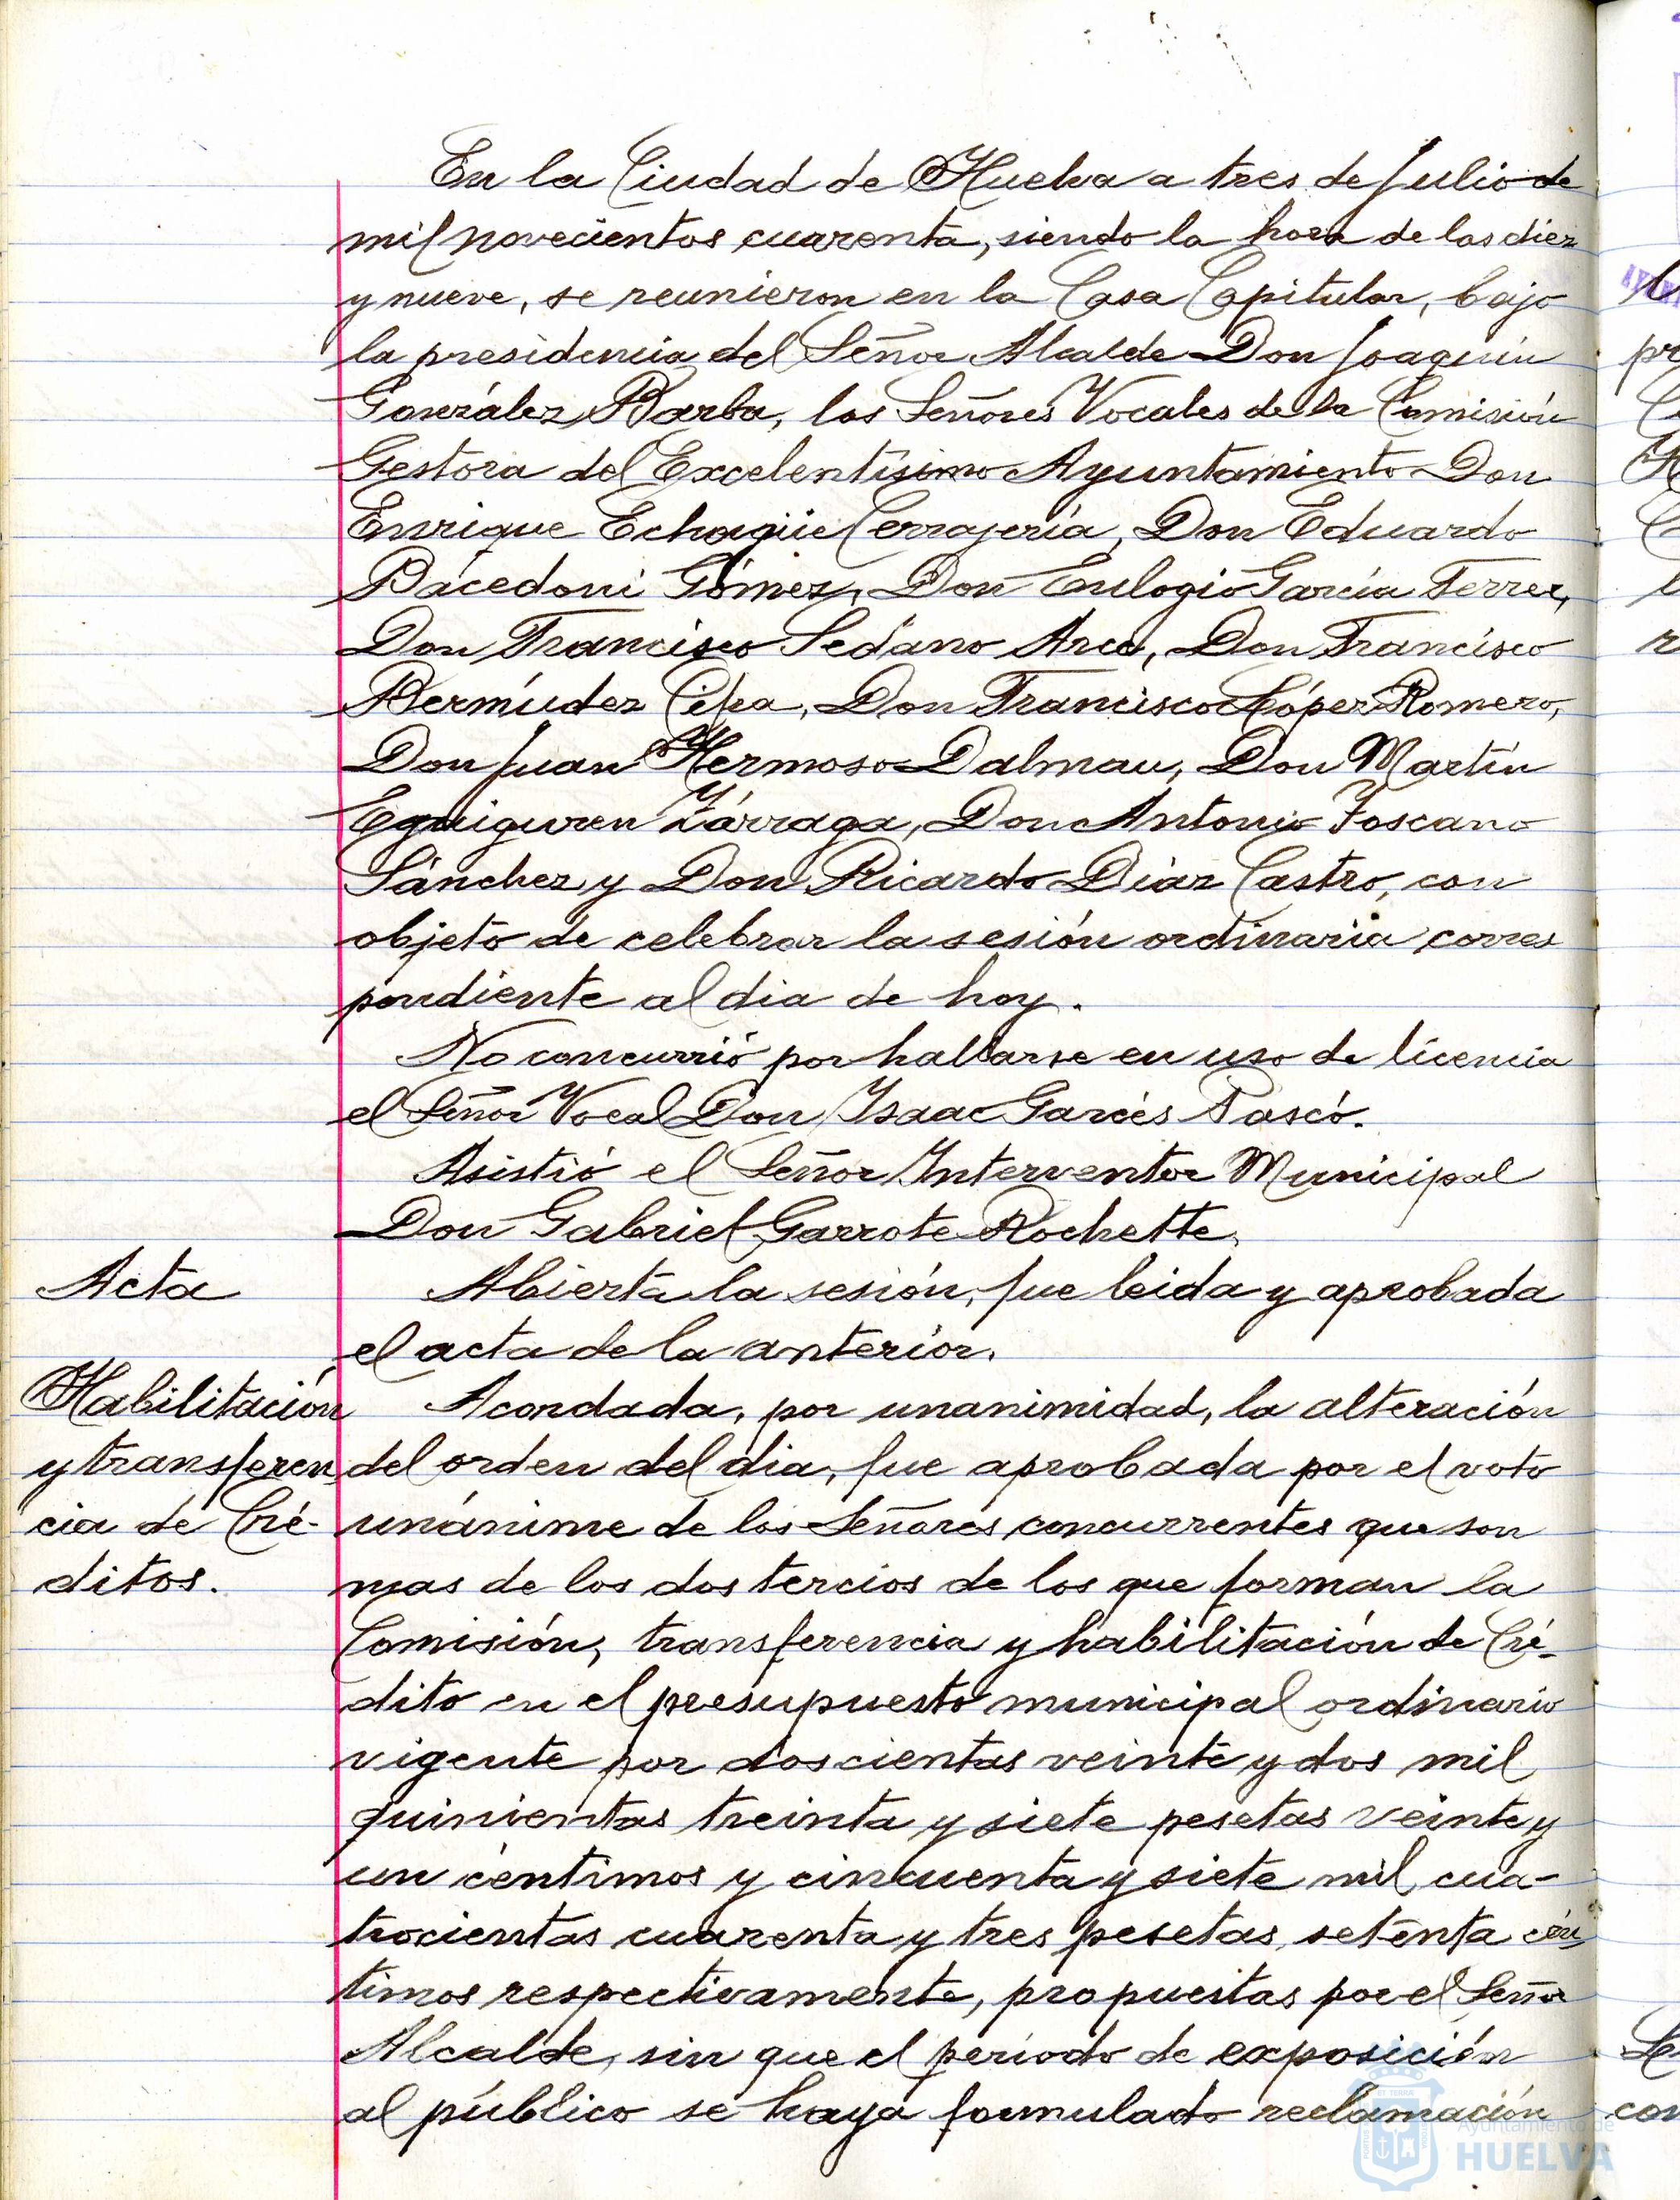 En la Ciudad de Huelva a tres de Julio de
mil novecientos cuarenta, siendo la hora de las diez
y nueve, se reunieron en la Casa Capitular, bajo
la presidencia del Señor Alcalde Don Joaquín
González Barba, los Señores Vocales de la Comisión
Gestora del Excelentísimo Ayuntamiento Don
Enrique Echagüe Cerrajería, Don Eduardo
Bacedoni Gómez, Don Eulogio García Ferrer,
Don Francisco Sedano Arce, Don Francisco
Bermúdez Don Francisco López Romero,
Don Juan Hermoso Dalmau, Don Martín
Eguiguren Zárraga, Don Antonio Toscano
Sánchez y Don Ricardo Díaz Castro, con
objeto de celebrar la sesión ordinaria corres
pondiente al dia de hoy.
No concurrió por hallarse en uso de licencia
el Señor Vocal Don Isaac Garcés Tascó.
Asistió el Señor Interventor Municipal
Don Gabriel Garrote Rochette.
Acta
Abierta la sesión, fue leida y aprobada
el acta de la anterior.
Habilitación
y transferen
cia de Cré-
ditos.
Acordada, por unanimidad, la alteración
del orden del dia, fue aprobada por el voto
unánime de los Señores concurrentes que son
mas de los dos tercios de los que forman la
Comisión, transferencia y habilitación de Cré-
dito en el presupuesto municipal ordinario
vigente por doscientas veinte y dos mil
quinientas treinta y siete pesetas veinte y
un céntimos y cincuenta y siete mil cua-
trocientas cuarenta y tres pesetas setenta cén
timos respectivamente, propuestas por el Señor
Alcalde, sin que el período de exposición
al público se haya formulado reclamación
Ayuntamiento de
HUELVA